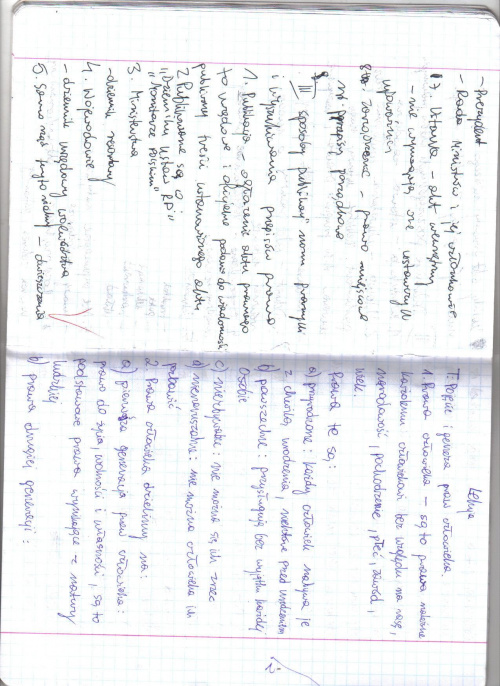 - Prezydent
- Rada Ministrów i jej członkowie
- akt wewnętrzny
- nie wymagają one
- prawo miejscowe
np. przepisy porządkowe
III sposoby publikacji norm prawnych
i wyszukiwania przepisów prawa
1. Publikacja – ogłoszenie aktu prawnego
to urzędowe i oficjalne podanie do wiadomości
publicznej treści ustanowionego aktu
2. Publikowane są w
„Dzienniku Ustaw RP”
„Monitorze Polskim”
3. Ministerstwa
- dziennik resortowy
4. Województwie
- dziennik urzędowy województwa
5. Samorząd terytorialny – obwieszczenia
Lekcja
T: Pojęcie i geneza praw człowieka.
1. Prawa człowieka – są to prawa należne
każdemu człowiekowi bez względu na rasę,
narodowość, pochodzenie, płeć, zawód,
wiek.
Prawa te są:
a) przyrodzone: każdy człowiek nabywa je
z chwilą urodzenia, niektóre przed urodzeniem
b) powszechne: przysługują bez wyjątku każdej
osobie
c) niezbywalne: nie można się ich zrzec
d) nienaruszalne: nie można człowieka ich
pozbawić
2. Prawa człowieka dzielimy na:
a) pierwsza generacja praw człowieka:
prawo do życia, wolności i własności, są to
podstawowe prawa wynikające z natury
ludzkiej
b) prawa drugiej generacji: